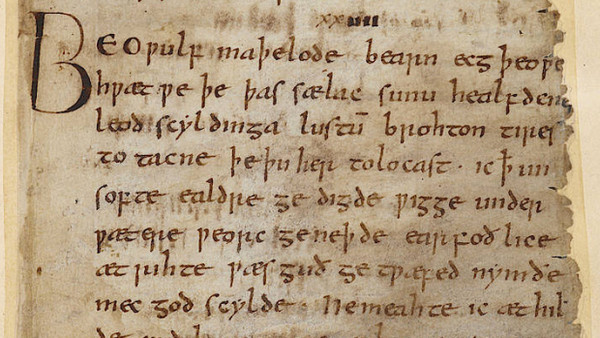 xxiiii
BEOǷULF maþelode bearn ecg þeoƿe
hƿæt ƿe þe þas sælac sunu healfdene
leod scyldinga lustū brohton tires
to tacne þe þu her to locast · ic ꝥ un
softe ealdre ge digde ƿigge under
ƿætere ƿeorc ge neþde earfoð lice
æt rihte ƿæs guð ge tƿæfed nymðe
mec god scylde · Ne meahte ic æt hil